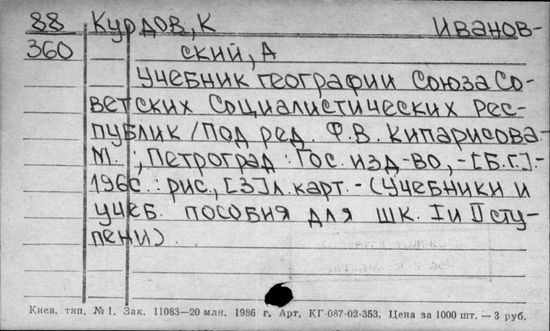 88 Курдов, К Иванов-
360 ский, А
Учебник географии Союза Со-
ветских Социалистических Рес-
публик / Под ред. Ф.В. Кипарисова-
М., Петроград : Гос. изд-во, - [Б.Г.]. -
196с. : рис., [3]л. карт. - (Учебники и
учеб. пособия для шк. I и II сту-
пени).
Киев. тип. № 1. Зак. 11083—20 млн. 1986 г. Арт. КГ-087-02-353. Цена за 1000 шт. — 3 руб.